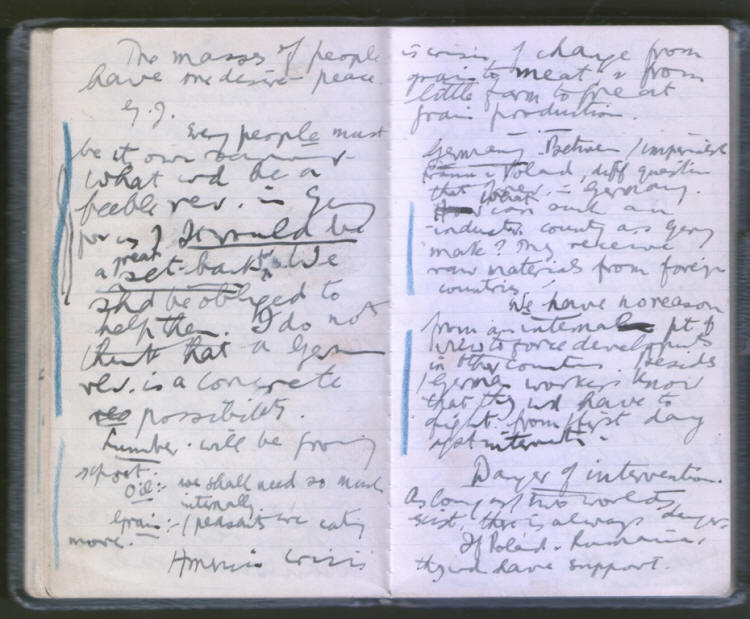 The masses of people
have one desire - peace.
e.g.
Every people must
be it own
What wd be a
feeble rev. in Germ
for us? It would be
a great set-back to We
shd be obliged to
help then. I do not
think that a Germ
rev. is a concrete
possibility.
Lumber. will be
export.
Oil:- we shall need so much
internally
Grain:- (peasants we eating
more.
America crisis
is crisis of change from
grain to meat & from
little farm to great
grain production.
Germany. Between imperialist
France & Poland, diff question
that of rev. in Germany.
What can such an
industr. country as Germy
make? Ing receive
raw materials from foreign
countries
We have no reason
from an internal pt of
view to force developments
in other countries. Besides
German workers know
that they wd have to
fight from first day
agst interventn.
Danger of intervention.
As long as two worlds
exist, there is always danger.
If Poland, Rumania,
they wd have support.